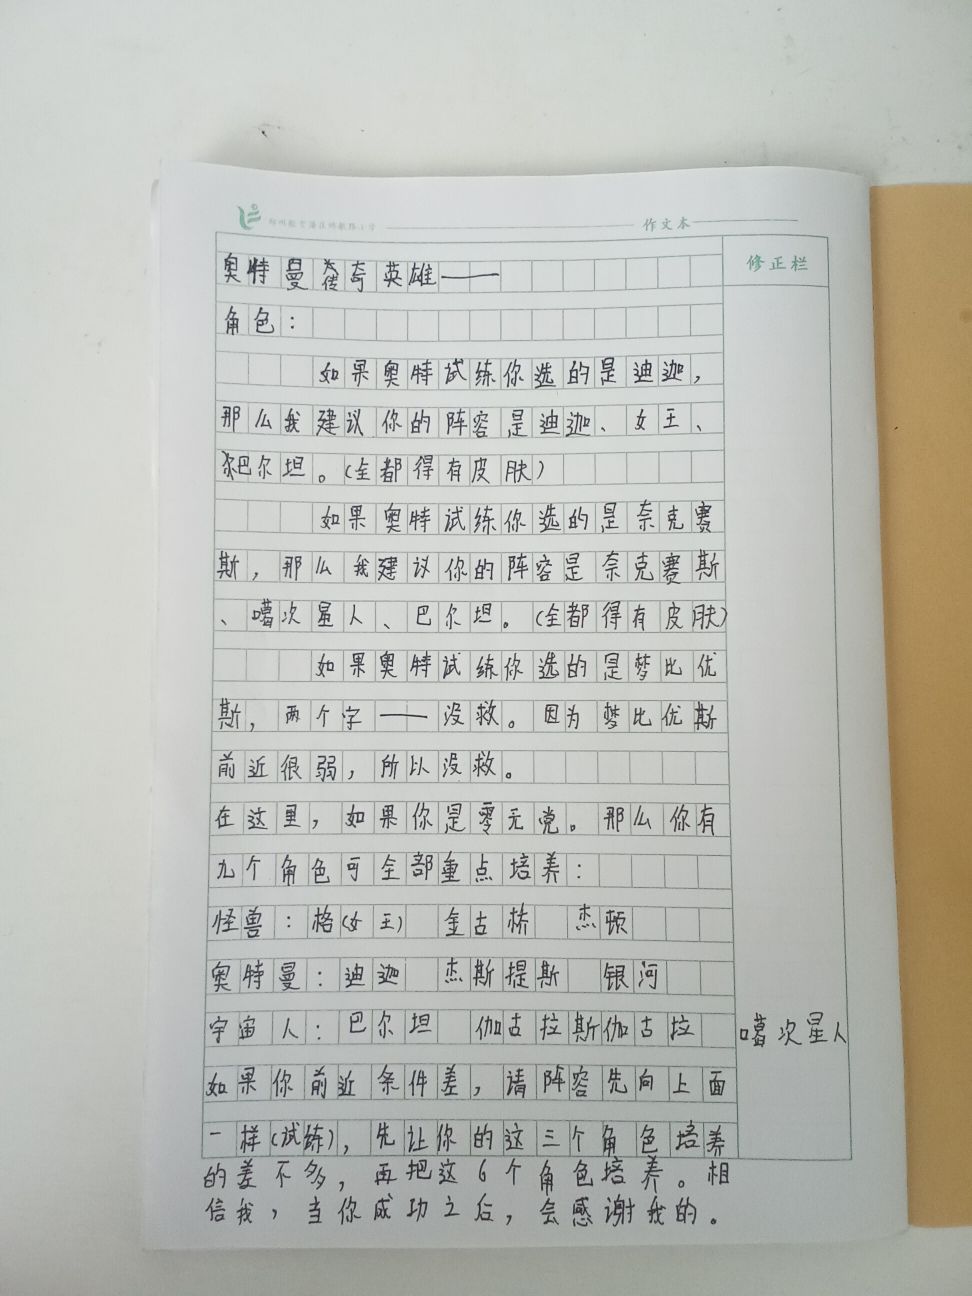 作文本
修正栏
奥特曼传奇英雄——
角色：
如果奥特试练你选的是迪迦，
那么我建议你的阵容是迪迦、女王、
巴尔坦。（全都得有皮肤）
如果奥特试练你选的是奈克赛
斯，那么我建议你的阵容是奈克赛斯
、噶次星人、巴尔坦。（全都得有皮肤）
如果奥特试练你选的是梦比优
斯，两个字——没救。因为梦比优斯
前近很弱，所以没救。
在这里，如果你是零元党。那么你有
九个角色可全部重点培养：
怪兽：格（女王） 金古桥 杰顿
奥特曼：迪迦 杰斯提斯 银河
宇宙人：巴尔坦 伽古拉斯伽古拉 噶次星人
如果你前近条件差，请阵容先向上面
一样（试练），先让你的这三个角色培养
的差不多，再把这6个角色培养。相
信我，当你成功之后，会感谢我的。